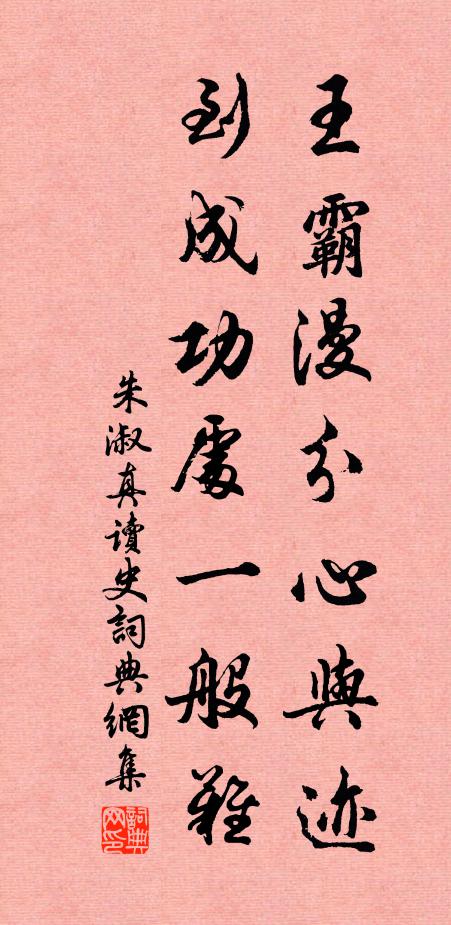 王霸漫分心與迹
到成功處一般難
朱淑真讀史詞典網集
詞典网印